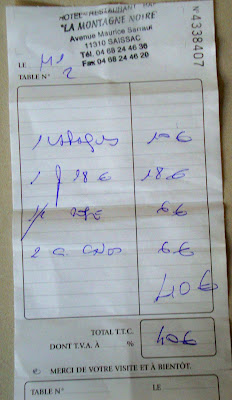 HOTEL - RESTAURANT BAR
"LA MONTAGNE NOIRE"
Avenue Maurice Sarraut
11310 SAISSAC
Tél. 04 68 24 46 36
Fax 04 68 24 46 20
N° 4338407
LE
TABLE N° 2
10 €
1 18 € 18 €
6 €
2 6 €
40 €
TOTAL T.T.C. 40 €
DONT T.V.A. À %
MERCI DE VOTRE VISITE ET À BIENTÔT.
TABLE N° LE